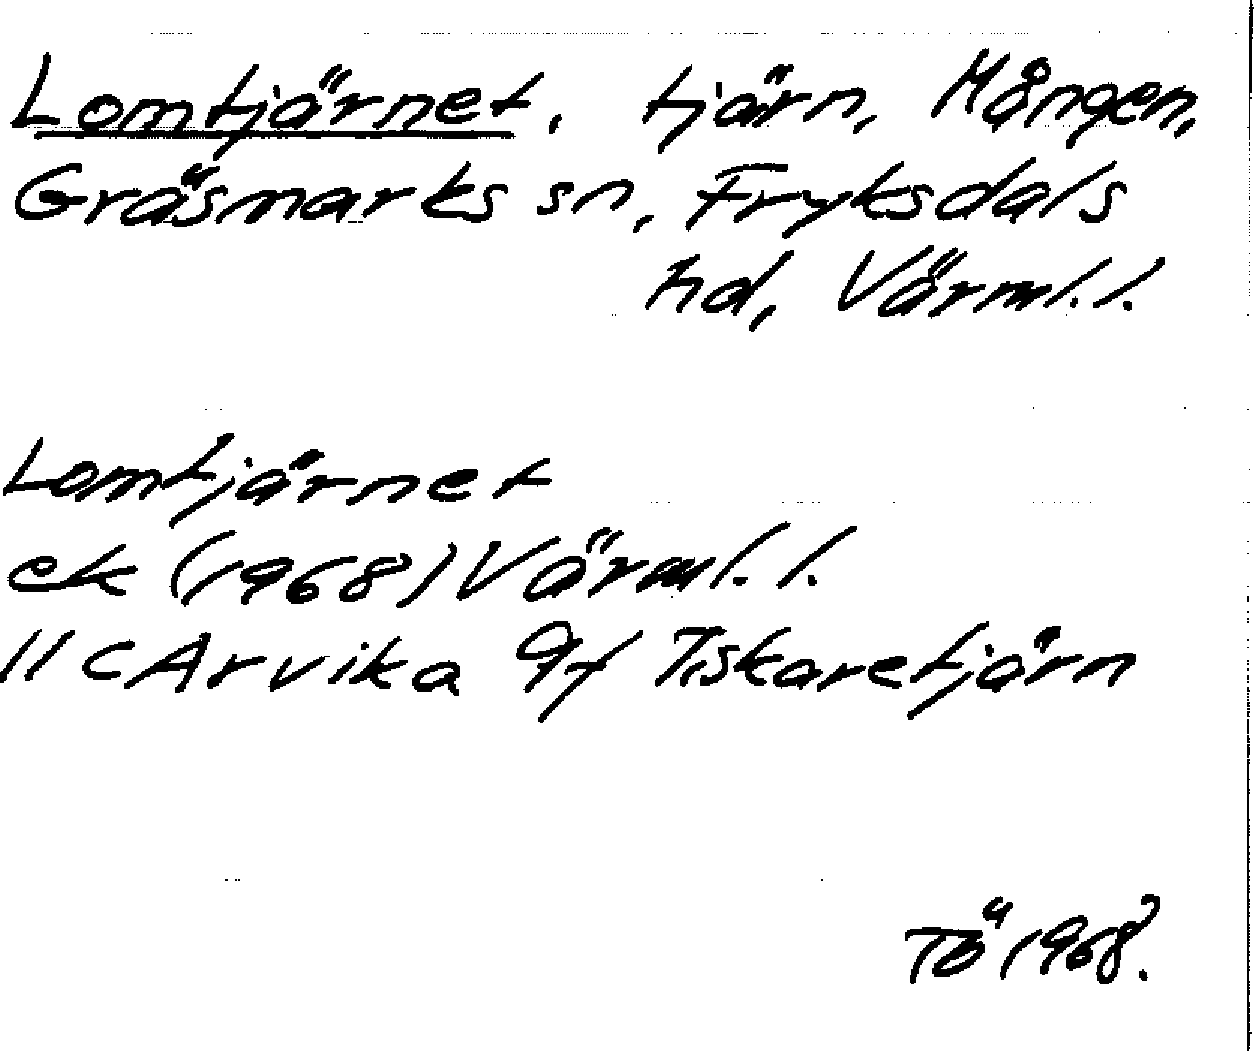 Lomtjärnet, tjärn, Mången,
Gräsmarks sn, Fryksdals
hd, Värml.l.
Lomtjärnet
ek (1968) Värml.l.
11 C Arvika 9f Tiskaretjärn
Tö 1968.